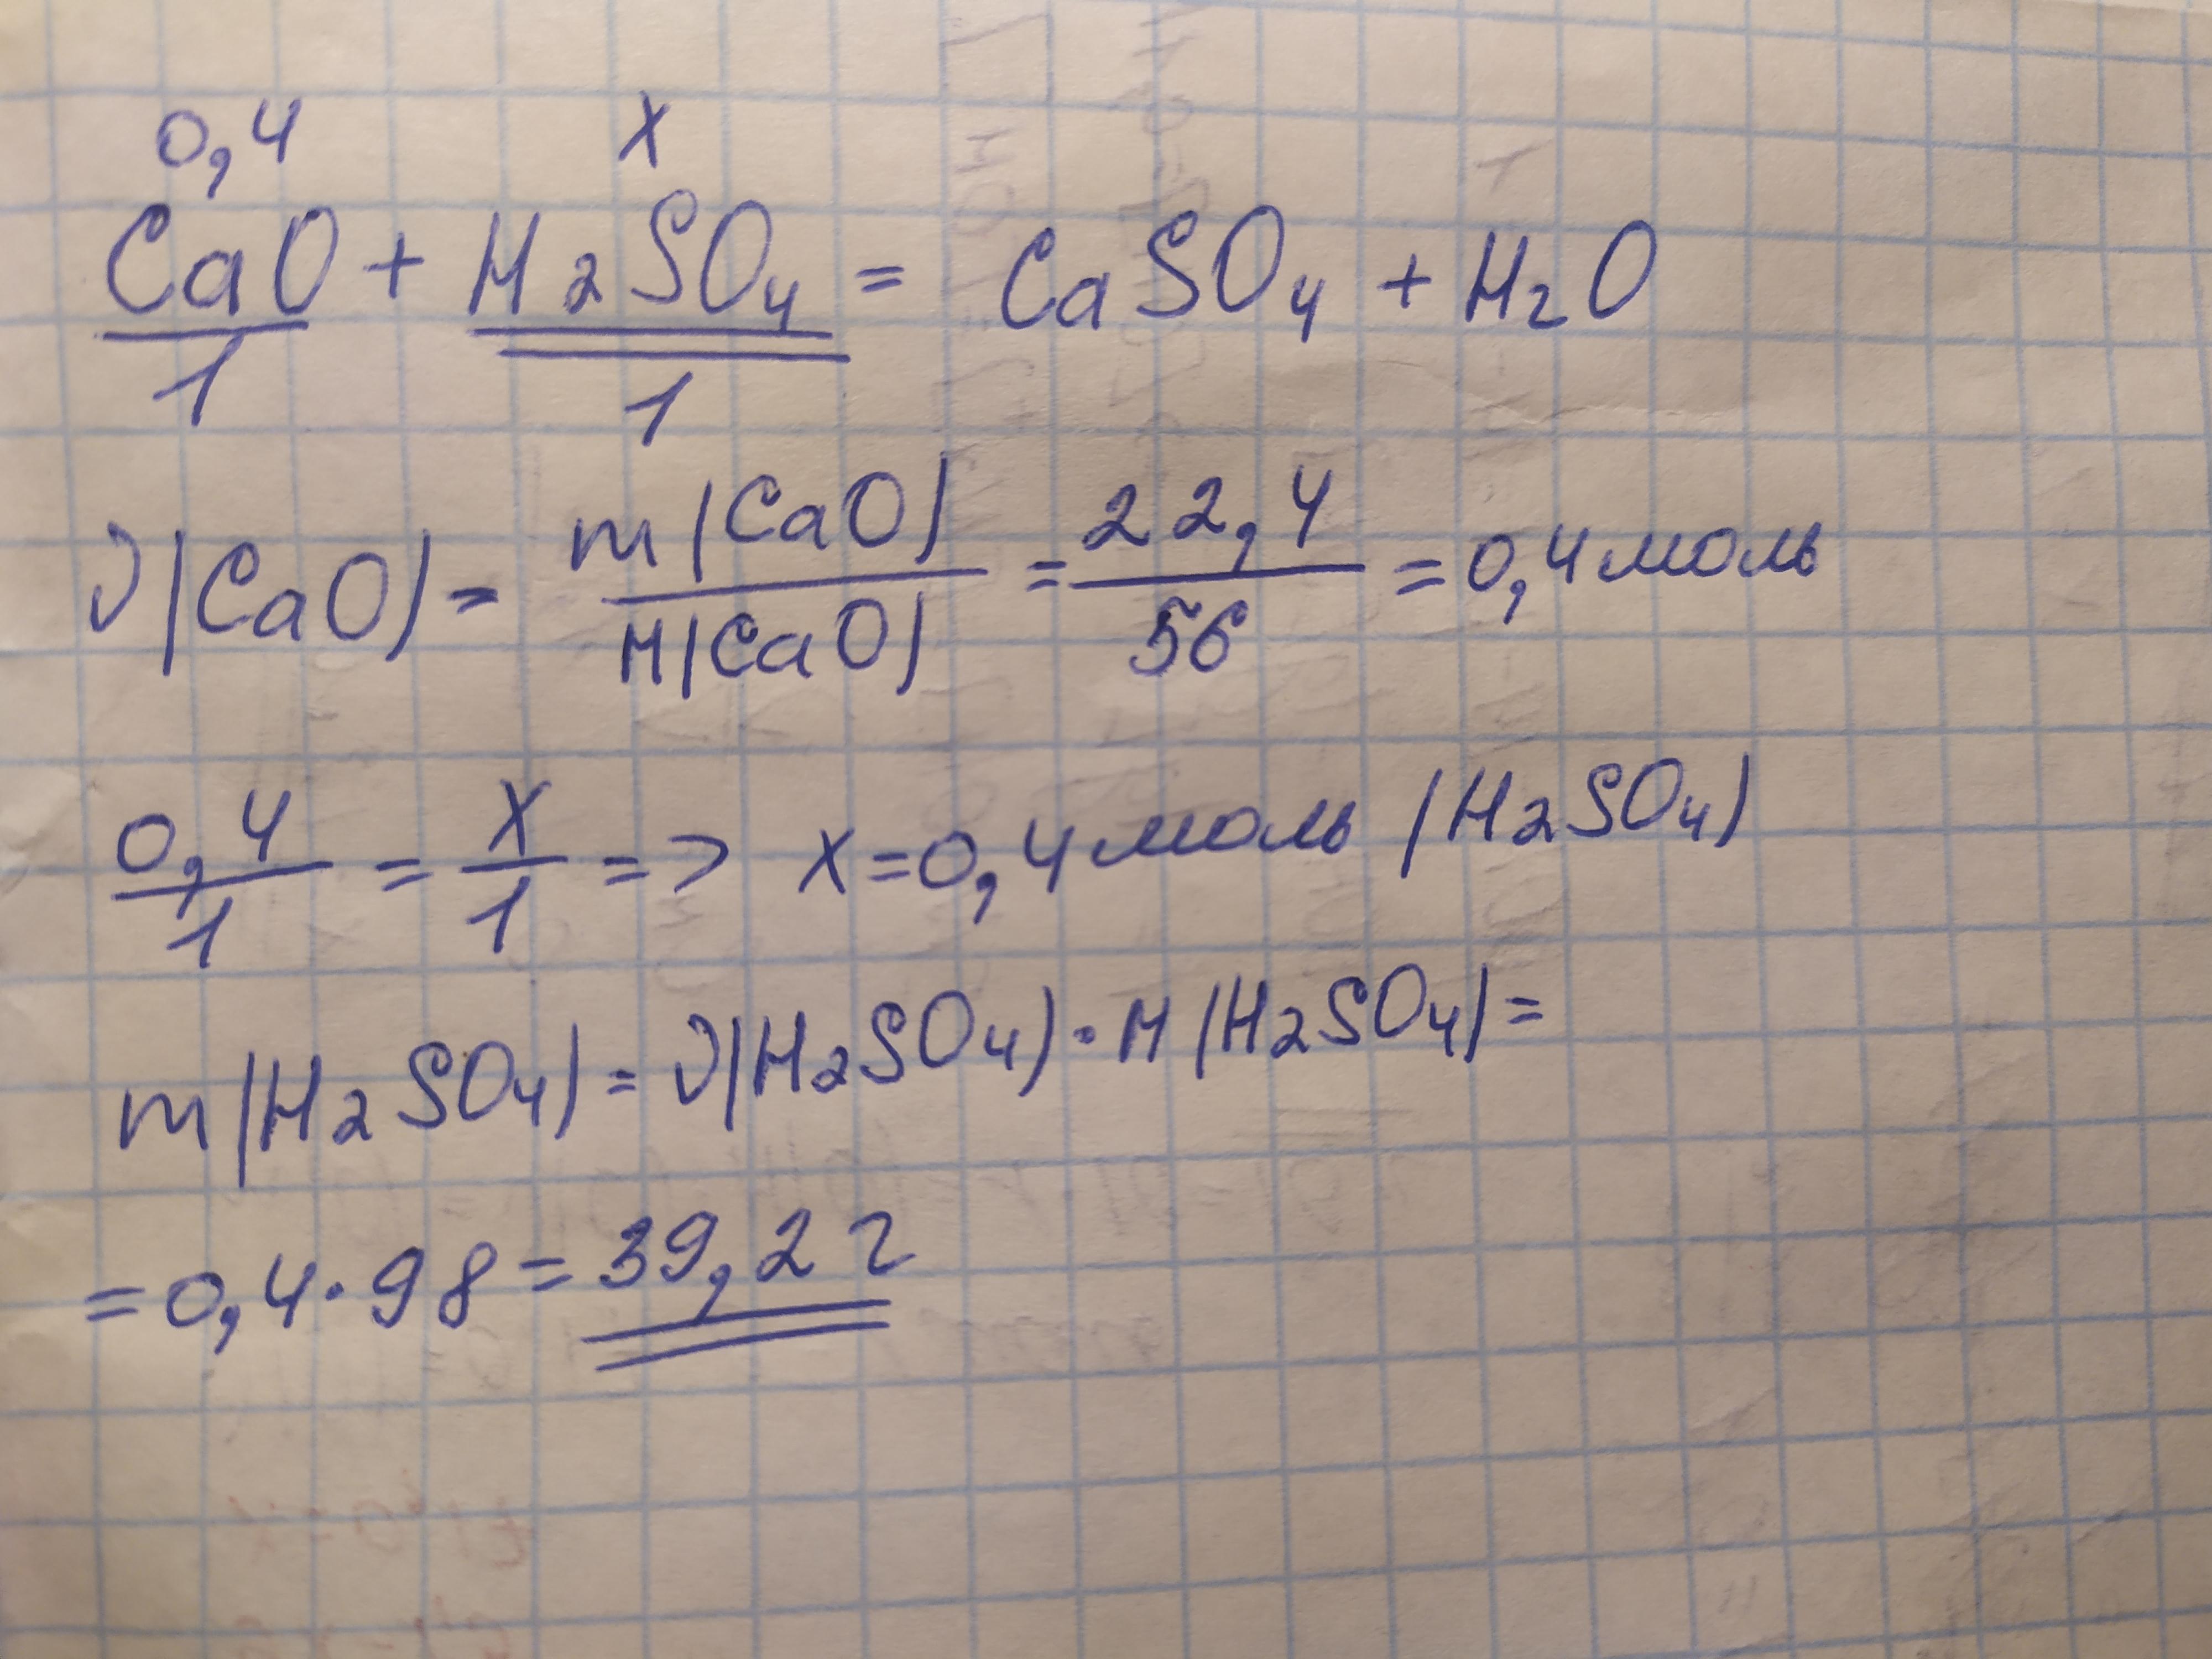 0,4 x
CaO + H₂SO₄ = CaSO₄ + H₂O
1 1
ν(CaO) = m(CaO)/M(CaO) = 22,4/56 = 0,4 моль
0,4/1 = x/1 => x = 0,4 моль (H₂SO₄)
m(H₂SO₄) = ν(H₂SO₄) · M(H₂SO₄) =
= 0,4 · 98 = 39,2 г